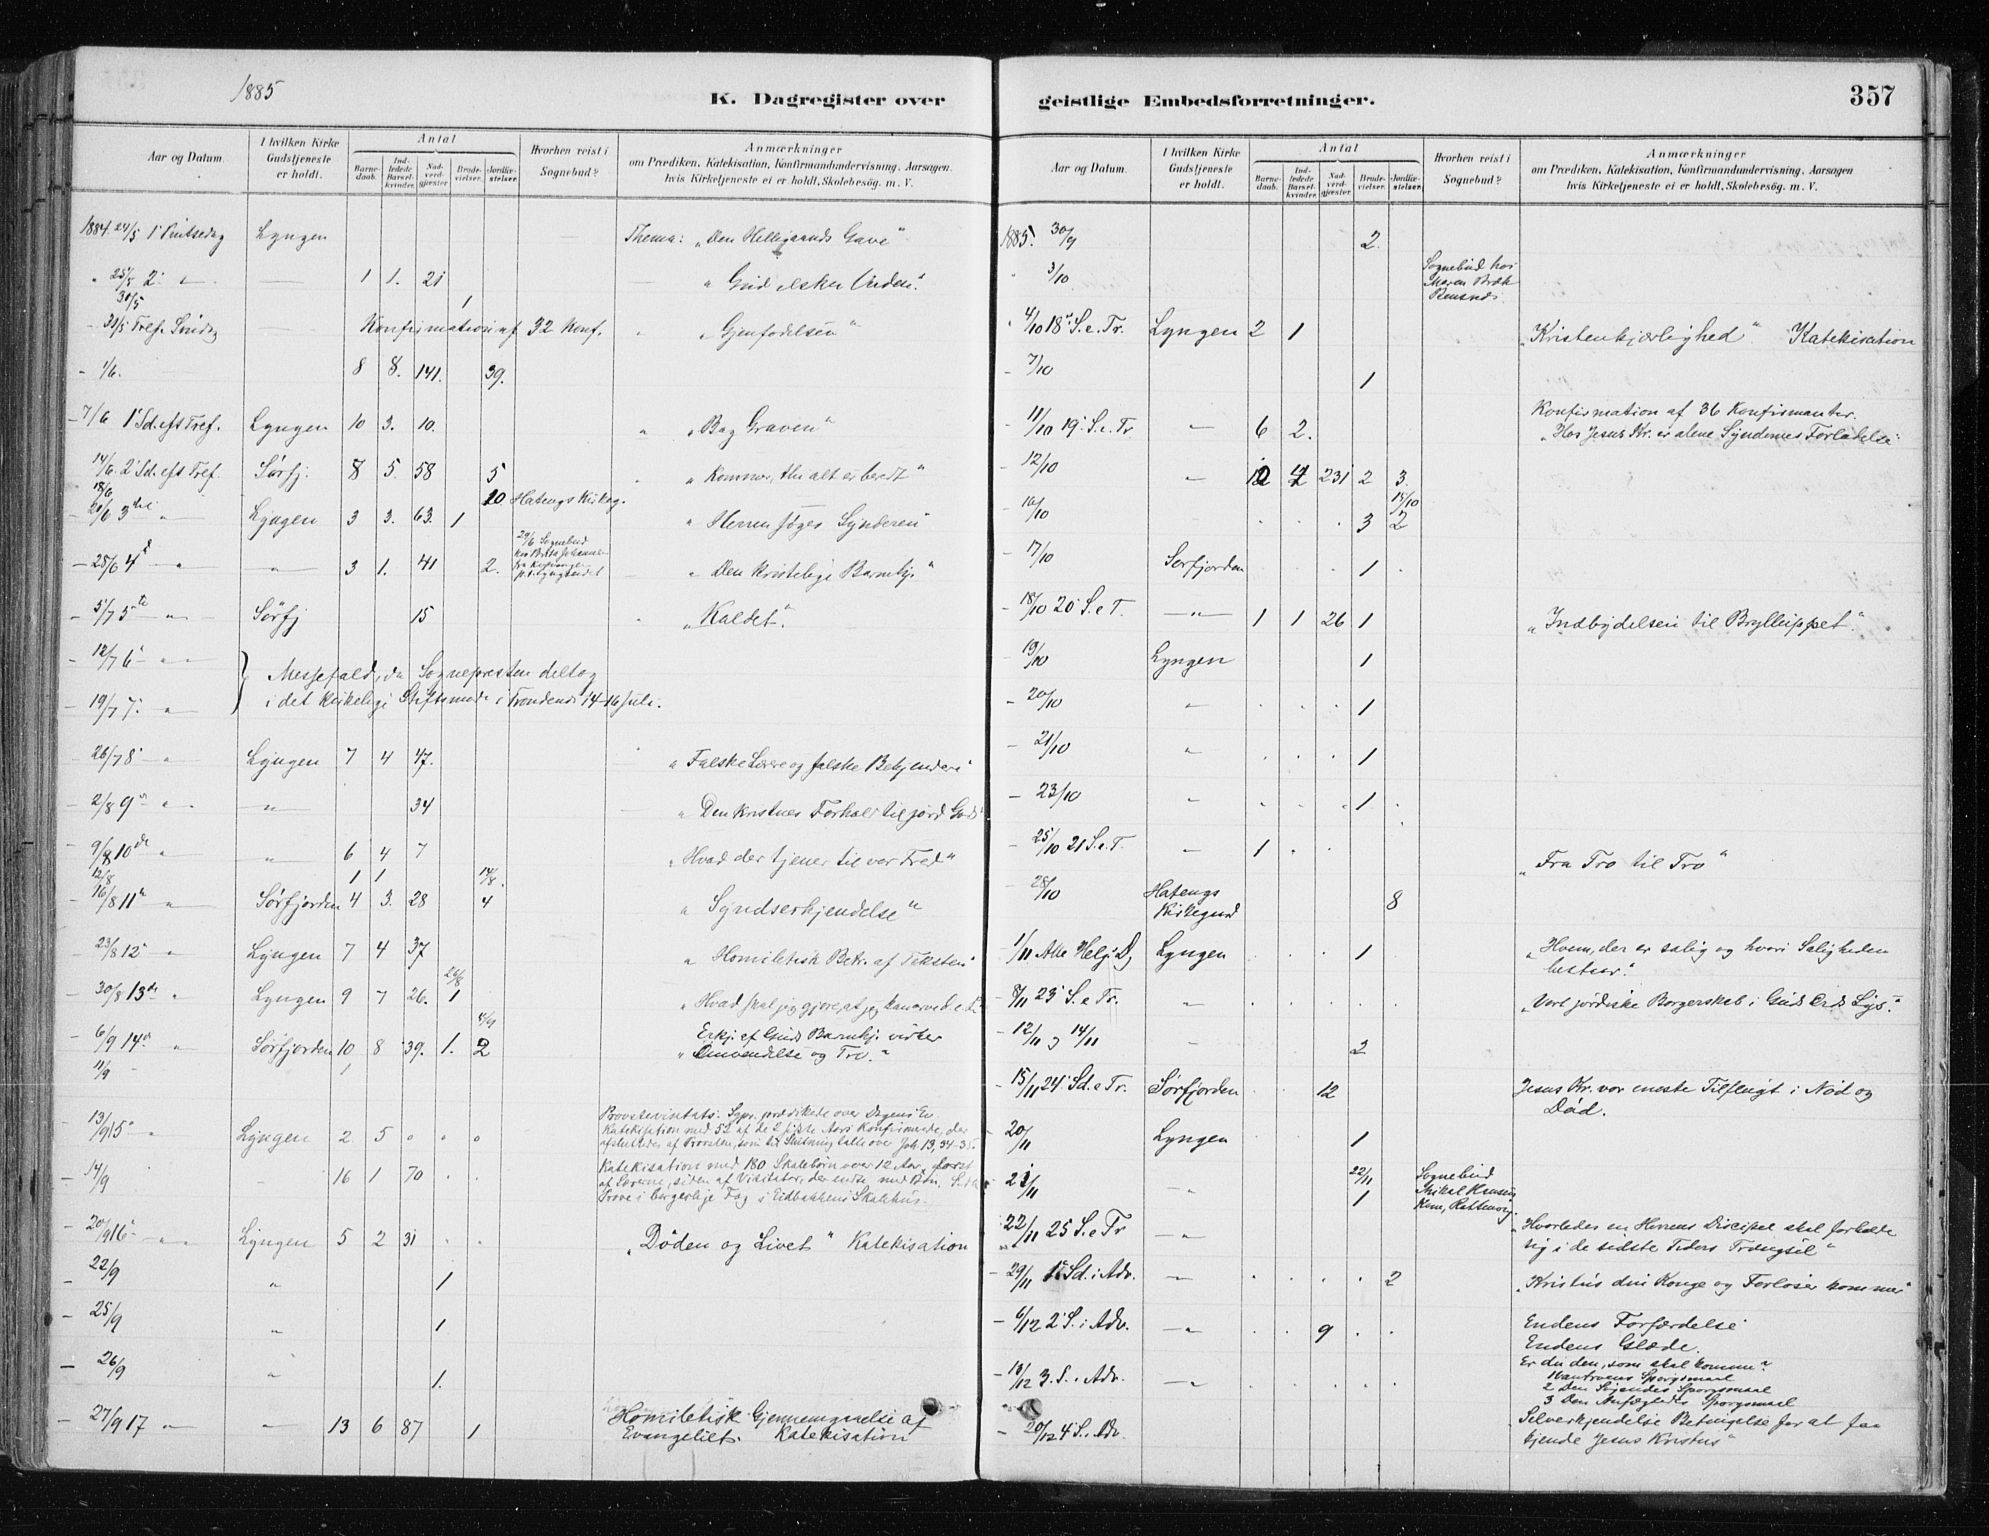 1885
K. Dagregister over
Aar og Datum.
I hvilken Kirke Gudstjeneste er holdt.
Antal
Barnedaab.
Indledede Barselkvinder.
Nadverdgjester.
Brudevielser.
Jordfæstelser.
Hvorhen reist i Sognebud?
Anmærkninger
om Prædiken, Katekisation, Konfirmandundervisning, Aarsagen,
hvis Kirketjeneste ei er holdt, Skolebesøg. m. V.
1884. 24/5 1 Pintsedag Lyngen Thema: „Den Helligaands Gave"
" 25/5 2. " — 1 1. 21 — "Gud elsker Verden".
30/5 1
- 31/5 Tref. Sindag — Konfirmation af 32 Konf. " „Gjenfødelsen"
- 1/6. 8 8. 141. 39.
- 7/6 1 Sd. eft Tref. Lyngen 10 3. 10. " „Bag Graven"
14/6. 2 Sd. eft Tref. Sørfj. 8 5. 58 5 „Kommer, thi alt er beredt"
18/6 10. Hatengs Kirkeg.
- 21/6 3die " Lyngen 3 3. 63. 1 " Herren søger Synderen"
29/6 Sognebud
- 28/6 4d " — " — 3 1. 41 2. — „Den kristelige Barnekj."
- 5/7 5te " Sørfj 15 „Kaldet".
- 12/7 6 " Messefald, da Sognepresten deltog
- 19/7 7. " i det kirkelige Stiftsmøde i Trondenes 14-16 Juli.
26/7 8 " Lyngen 7 4 47. „Falske Lærere og falske Bekjendere"
- 2/8 9 " — " — 34 „Den kristnes Forhold til jord. Gods"
- 9/8 10de " " 6 4 7 „Hvad der tjener til vor Fred"
12/8 1 1 14/8.
- 16/8 11 " Sørfjorden 4 3. 28 4 „Syndserkjendelse"
- 23/8 12 " Lyngen 7 4 37 „Homiletisk Betr. af Teksten"
26/8
- 30/8 13de " Lyngen 9 7 26. 1 „Hvad skal jeg gjøre, at jeg kan arve d. e. L."
4/9 Erkj. af Guds Barmhj. virker
- 6/9 14d " Sørfjorden 10 8 39. 1. 2 „Omvendelse og Tro."
11/9 1
Provstevisitats. Spr. prædikede over Dagens Ev.
- 13/9 15 " Lyngen 2 5 " " " Katekisation med 52 af de 2 sidste Aars Konfirmerede, der
afsluttedes af Provsten, som til Slutning talte over Joh 13, 34-35.
- 14/9 16 1 70 . . Katekisation med 180 Skolebørn over 12 Aar, først
af Lærerne, siden af Visitator, der endte med Bøn.
Prøve i borgerlige Fag i Eidbakkens Skolehus.
- 20/9 16 " Lyngen 5 2 31 . . „Døden og Livet" Katekisation
- 22/9 " 1
- 25/9 " 1
- 26/9 " 1.
- 27/9 17 " — 13 6 87 1 Homiletisk Gjennemgaaelse af
Evangeliet. Katekisation
geistlige Embedsforretninger.
357
Aar og Datum.
I hvilken Kirke Gudstjeneste er holdt.
Antal
Barnedaab.
Indledede Barselkvinder.
Nadverdgjester.
Brudevielser.
Jordfæstelser.
Hvorhen reist i Sognebud?
Anmærkninger
om Prædiken, Katekisation, Konfirmandundervisning, Aarsagen
hvis Kirketjeneste ei er holdt, Skolebesøg. m. V.
1885. 30/9 2.
" 3/10 Sognebud hos
Maren
4/10 18 S. e. Tr. Lyngen 2 1 „Kristenkjærlighed". Katekisation
- 7/10 1
Konfirmation af 36 Konfirmanter.
- 11/10 19. S. e. Tr. " 6 2. „Hos Jesus Kr. er alene Syndernes Forladelse."
- 12/10 " 231 2 3.
15/10
- 16/10 . . . 3 2
- 17/10 Sørfjorden 1 .
- 18/10 20 S. e T. — " — 1 1 26 1 „Indbydelsen til Bryllüppet".
- 19/10 Lyngen 1
- 20/10 " 1
- 21/10 " 1
- 23/10 " 1
- 25/10 21 S. e. T. " 1 „Fra Tro til Tro"
- 28/10 Hatengs 8
Kirkegaard
- 1/11 Alle Helg. D. Lyngen 1 „Hvem, der er salig og hvori Saligheden
bestaar".
- 8/11 23 S. e Tr. " „Vort jordiske Borgerskab i Guds Ords Lys."
- 12/11 og 14/11 " 2
- 15/11 24. Sd. e Tr. Sørfjorden 12 Jesus Kr. vor eneste Tilflugt i Nød og
Død.
- 20/11 Lyngen 1
22/11 Sognebud
- 21/11 " 1 Mikal Hansen
- 22/11 25 S. e Tr — " — „Hvorledes en Herrens Discipel skal forholde
sig i de sidste Tiders Trængsel"
- 29/11 1 Sd. i Adv. — " — 2 „Kristus din Konge og Forløser kommer"
- 6/12 2 S. i Adv. — " — 9 Endens Forfærdelse
Endens Glæde.
Er du den, som skal komme?
- 13/12 3. S. i Adv. — " — 1 Vantroens Spørgsmaal
2 Den Søgendes Spørgsmaal
3 Den Anfægtedes Spørgsmaal
- 20/12 4 S. i Adv. Selverkjendelse Betingelse for at faa
kjende Jesus Kristus"